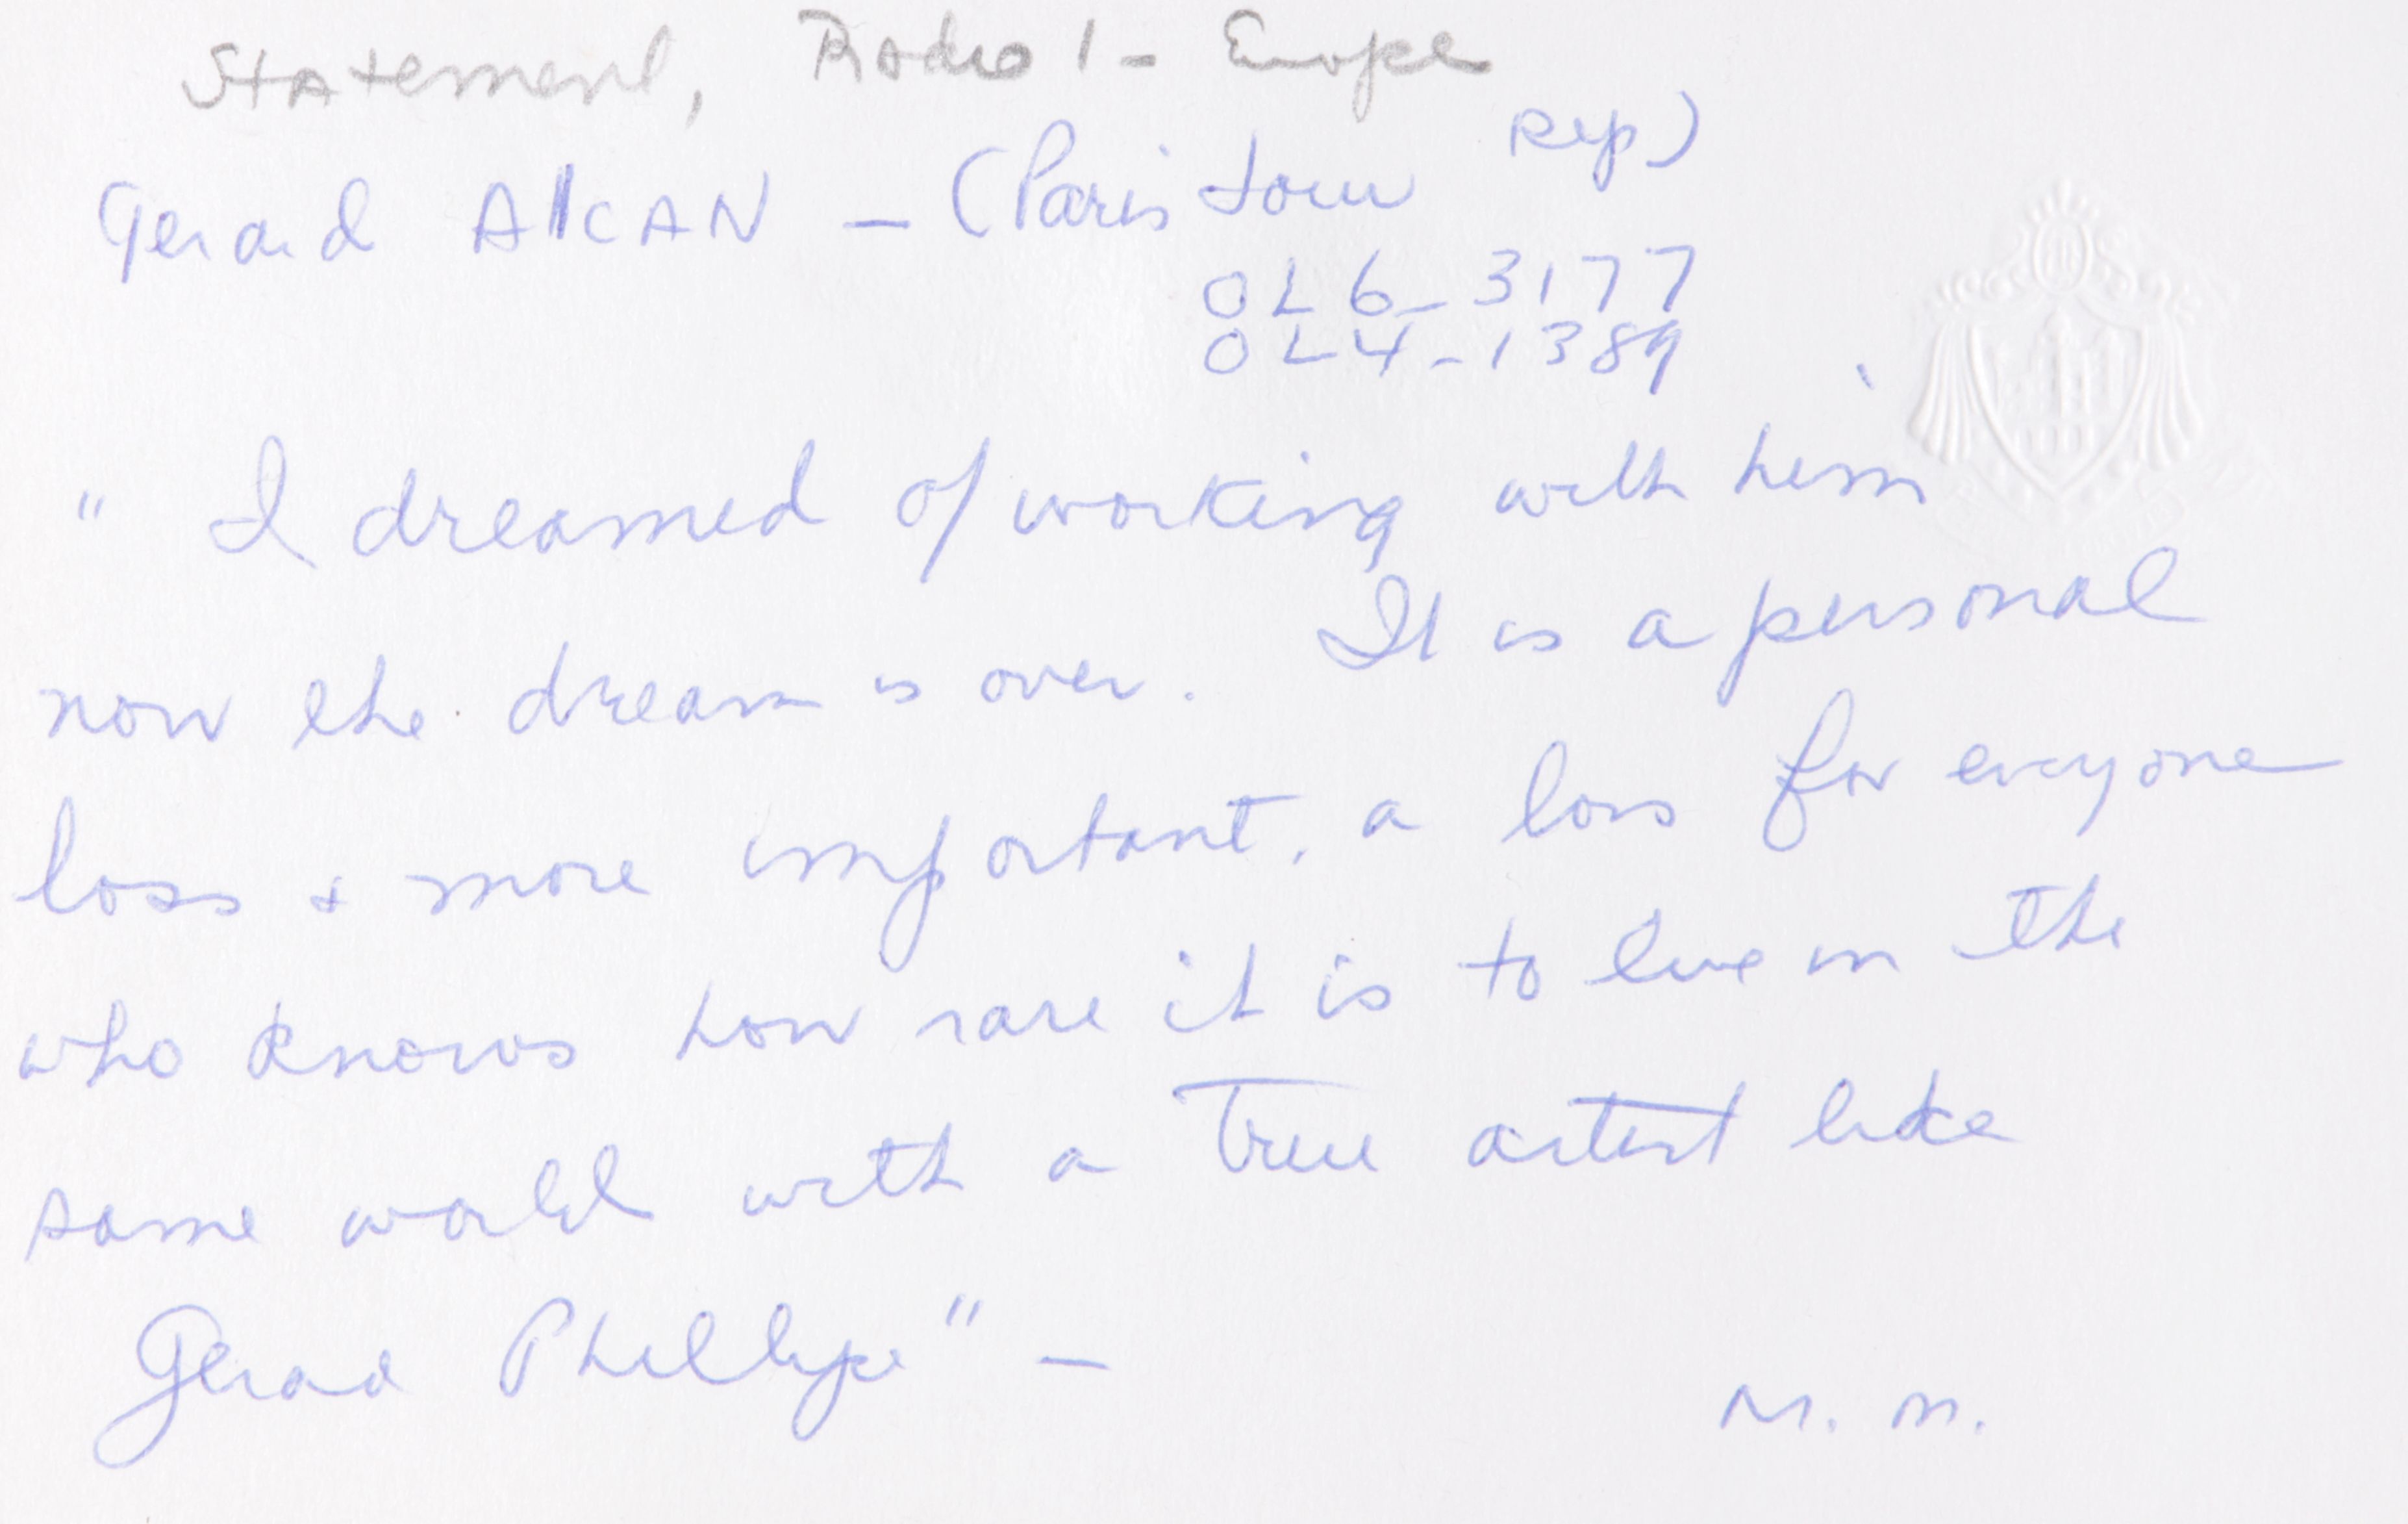 Statement, Radio 1 - Europe
Gerard AlCAN - (Paris Jour Rep)
OL 6 - 3177
OL 4 - 1389
" I dreamed of working with him
now the dream is over. It is a personal
loss + more important, a loss for everyone
who knows how rare it is to live in the
same world with a True artist like
Gerad Phillipe" -
M. M.